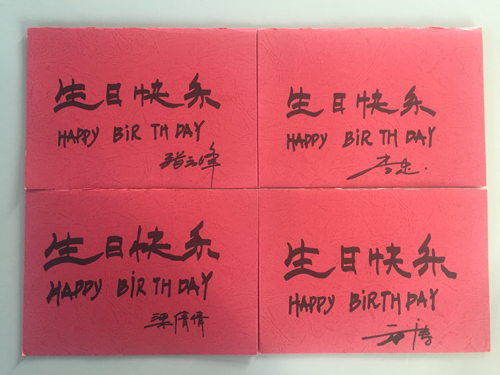 生日快乐
HAPPY BIRTHDAY
生日快乐
HAPPY BIRTHDAY
生日快乐
HAPPY BIRTHDAY
梁倩倩
生日快乐
HAPPY BIRTHDAY